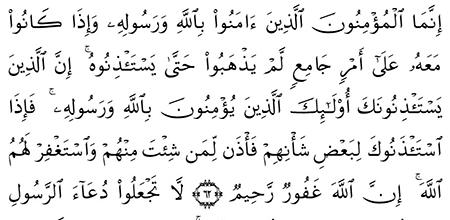 إِنَّمَا ٱلْمُؤْمِنُونَ ٱلَّذِينَ ءَامَنُوا۟ بِٱللَّهِ وَرَسُولِهِۦ وَإِذَا كَانُوا۟
مَعَهُۥ عَلَىٰٓ أَمْرٍ جَامِعٍ لَّمْ يَذْهَبُوا۟ حَتَّىٰ يَسْتَـْٔذِنُوهُ ۚ إِنَّ ٱلَّذِينَ
يَسْتَـْٔذِنُونَكَ أُو۟لَـٰٓئِكَ ٱلَّذِينَ يُؤْمِنُونَ بِٱللَّهِ وَرَسُولِهِۦ ۚ فَإِذَا
ٱسْتَـْٔذَنُوكَ لِبَعْضِ شَأْنِهِمْ فَأْذَن لِّمَن شِئْتَ مِنْهُمْ وَٱسْتَغْفِرْ لَهُمُ
ٱللَّهَ ۚ إِنَّ ٱللَّهَ غَفُورٌ رَّحِيمٌ ﴿٦٢﴾ لَّا تَجْعَلُوا۟ دُعَآءَ ٱلرَّسُولِ